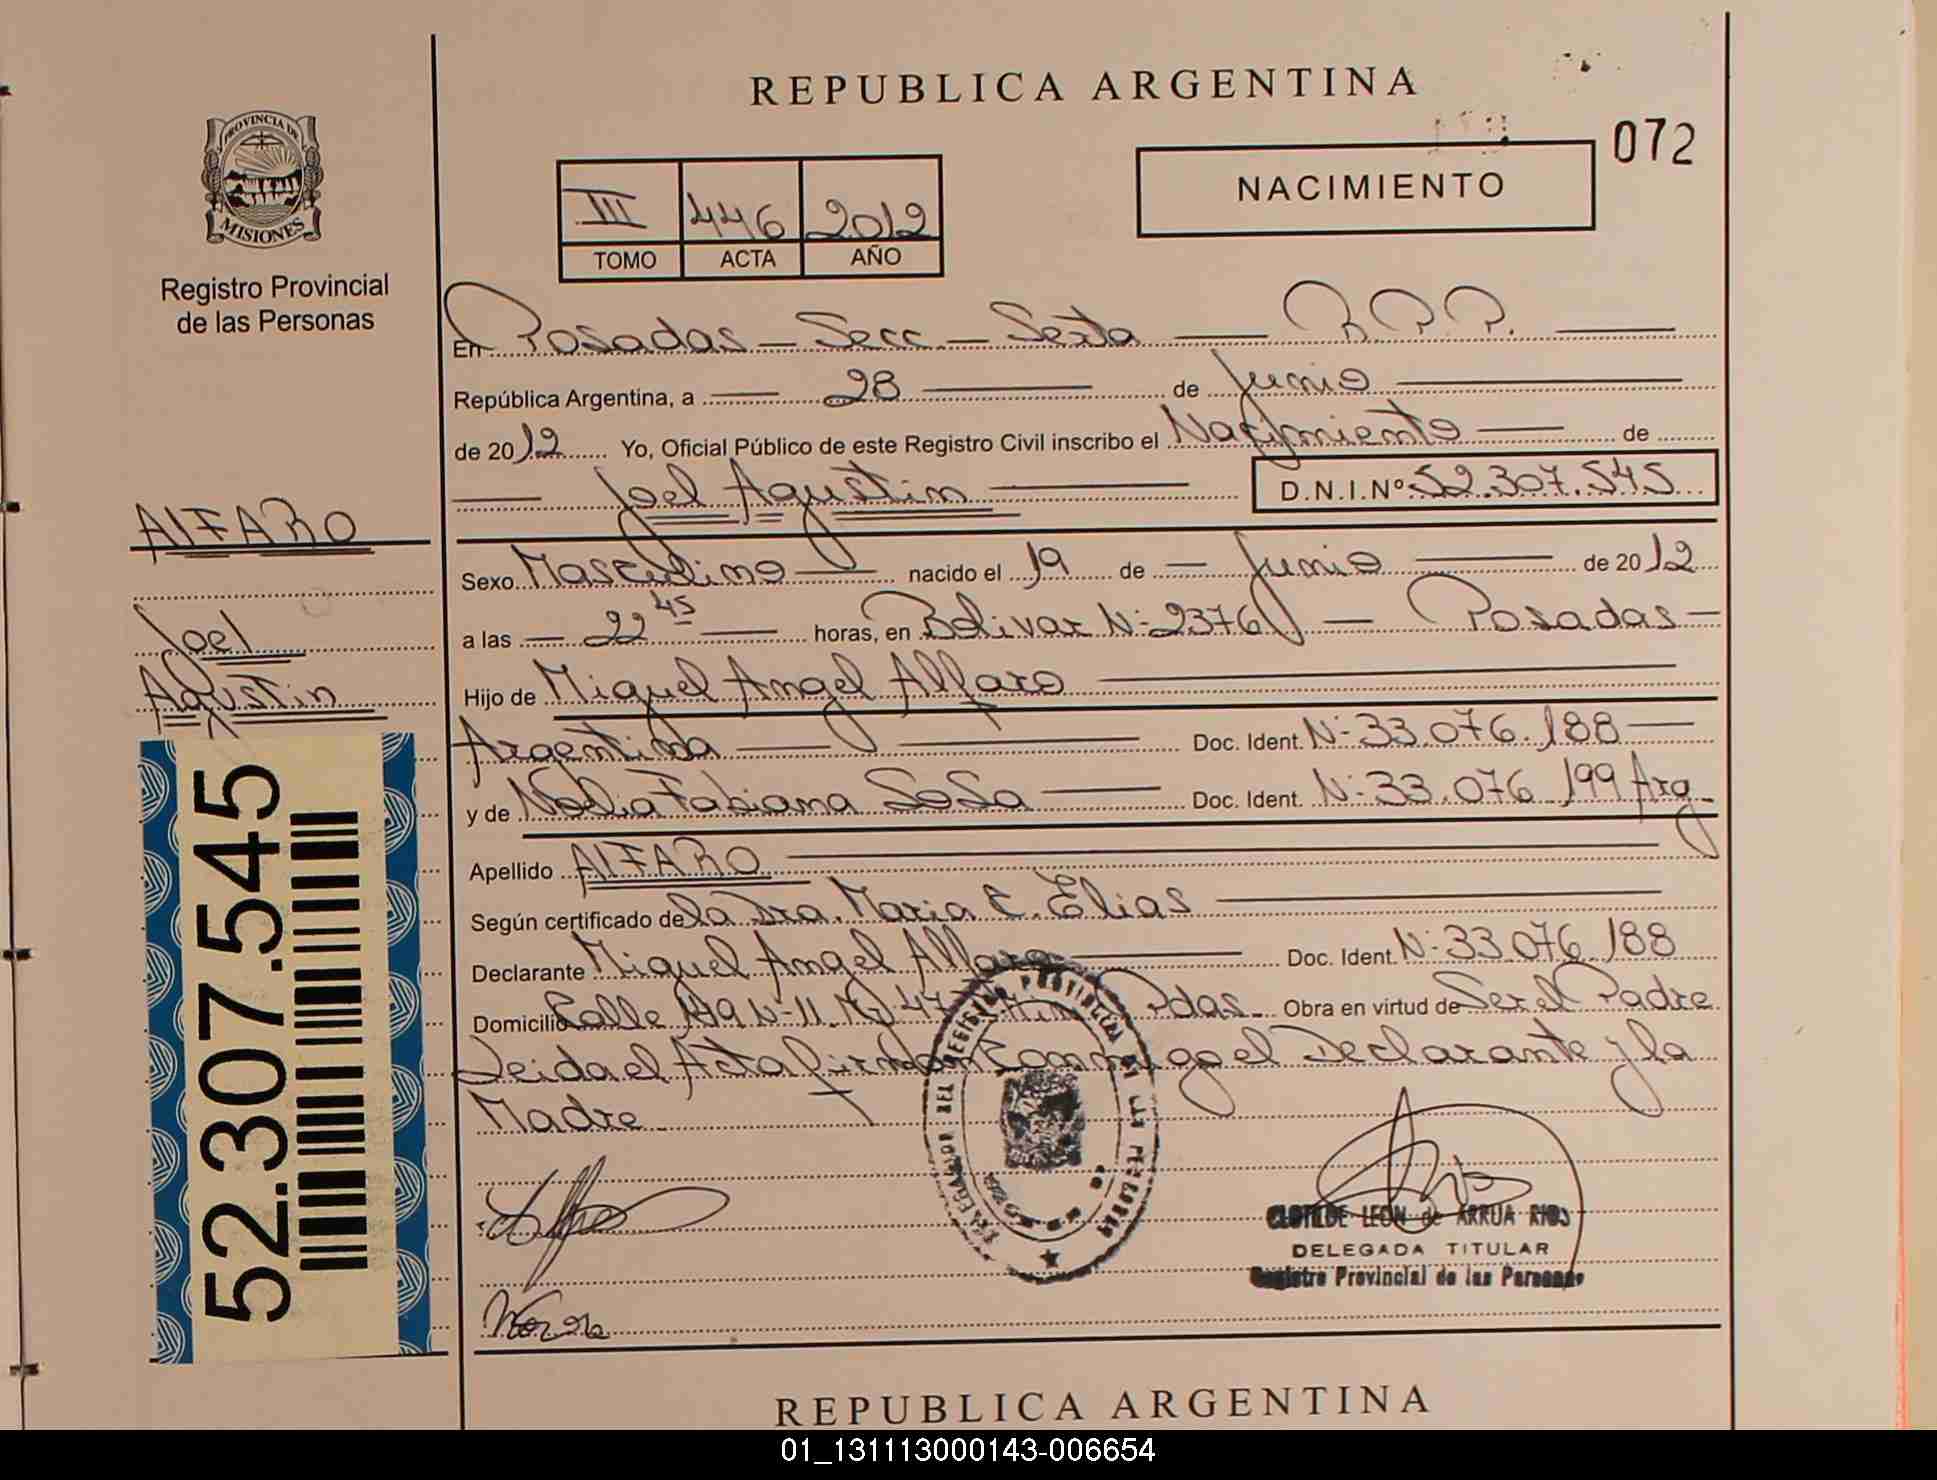 REPUBLICA ARGENTINA
072
PROVINCIA DE
MISIONES
Registro Provincial
de las Personas
NACIMIENTO
III 446 2012
TOMO ACTA AÑO
En Posadas – Secc – Sexta — R.P.P. —
República Argentina, a — 28 — de Junio —
de 2012 Yo, Oficial Público de este Registro Civil inscribo el Nacimiento — de
— Joel Agustin — D.N.I.Nº 52.307.545
ALFARO
Joel
Agustin
52.307.545
Sexo Masculino — nacido el 19 de — Junio — de 2012
a las — 22 45 — horas, en Bolivar N: 2376 — Posadas —
Hijo de Miguel Angel Alfaro —
Argentina — — Doc. Ident. N: 33.076.188 —
y de Noelia Fabiana Sosa — Doc. Ident. N: 33.076.199 Arg
Apellido ALFARO —
Según certificado de la Dra. Maria C. Elias —
Declarante Miguel Angel Alfaro — Doc. Ident. N: 33.076.188
Domicilio Calle N-11 Pdas. Obra en virtud de Ser el Padre
Leida el Acta firman Conmigo el Declarante y la
Madre
CLOTILDE LEON de ARRUA RIOS
DELEGADA TITULAR
Registro Provincial de las Personas
REPUBLICA ARGENTINA
01_131113000143-006654